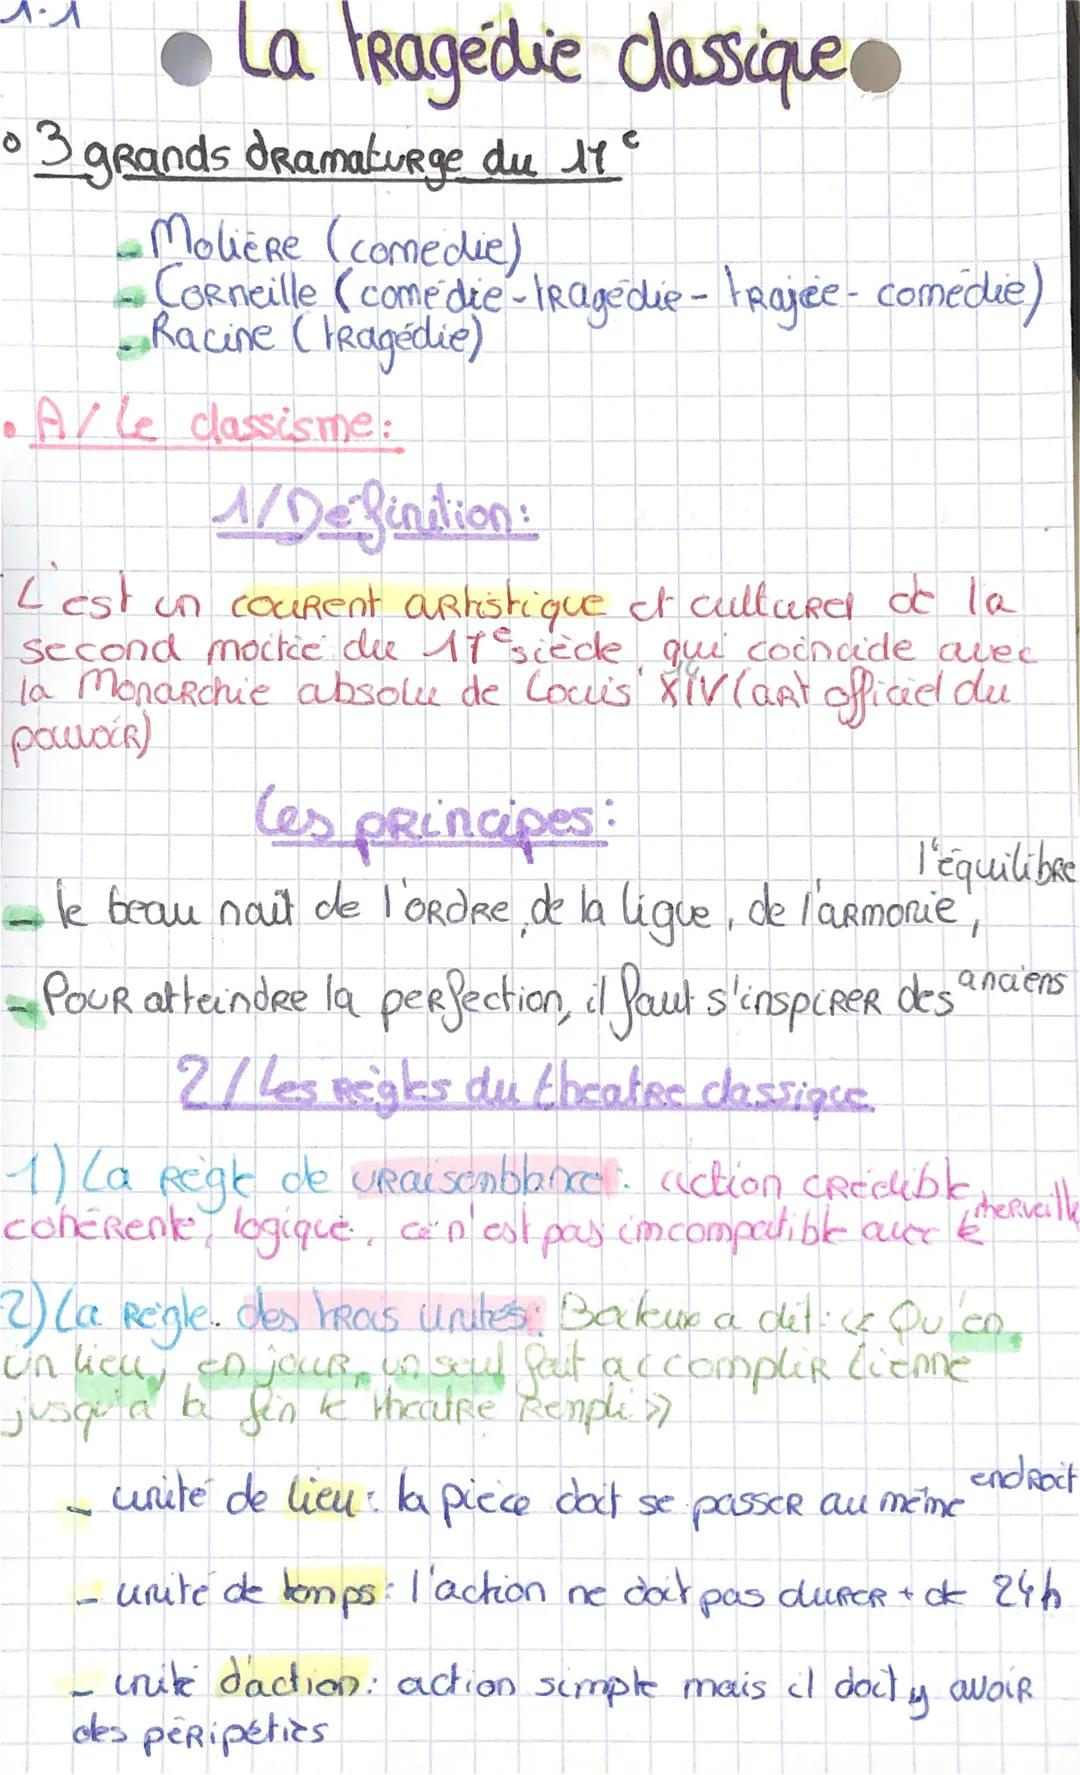 1.1
La tragédie classique
3 grands dramaturge du 17e
- Molière (comedie)
- Corneille (comédie - tragédie - trajée - comédie)
- Racine (tragédie)
A/ Le classisme:
1/ Définition:
C'est un courent artistique et culturel de la
second moitié du 17e siècle, qui coincide avec
la Monarchie absolu de Louis XIV (art officiel du
pouvoir)
Les principes:
- le beau nait de l'ordre, de la ligue, de l'armonie, l'équilibre
- Pour atteindre la perfection, il faut s'inspirer des anciens
2/ Les règles du theatre classique
1) La règle de vraisemblance: action crédible,
cohérente, logique, ce n'est pas imcompatible avec le merveille
2) La règle des trois unités: Boileux a dit: « Qu'en
un lieu, en jour, un seul fait accomplir tienne
jusqu'a la fin le theatre Rempli »
- unité de lieu: la pièce doit se passer au même endroit
- unité de temps: l'action ne doit pas durer + de 24h
- unité d'action: action simple mais il doit y avoir
des péripéties